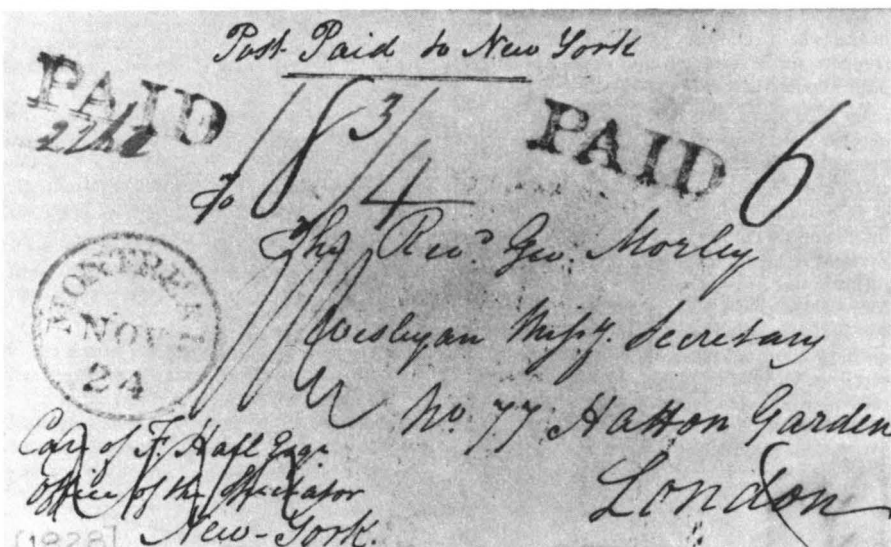 Post Paid to New York
PAID
PAID 6
18 3/4
To
The Revd. Geo. Morley
Wesleyan Missy. Secretary
No. 77 Hatton Garden
London
MONTREAL
NOV
24
Care of F. Hall Esqr
Office of the Spectator
New-York.
[1828]